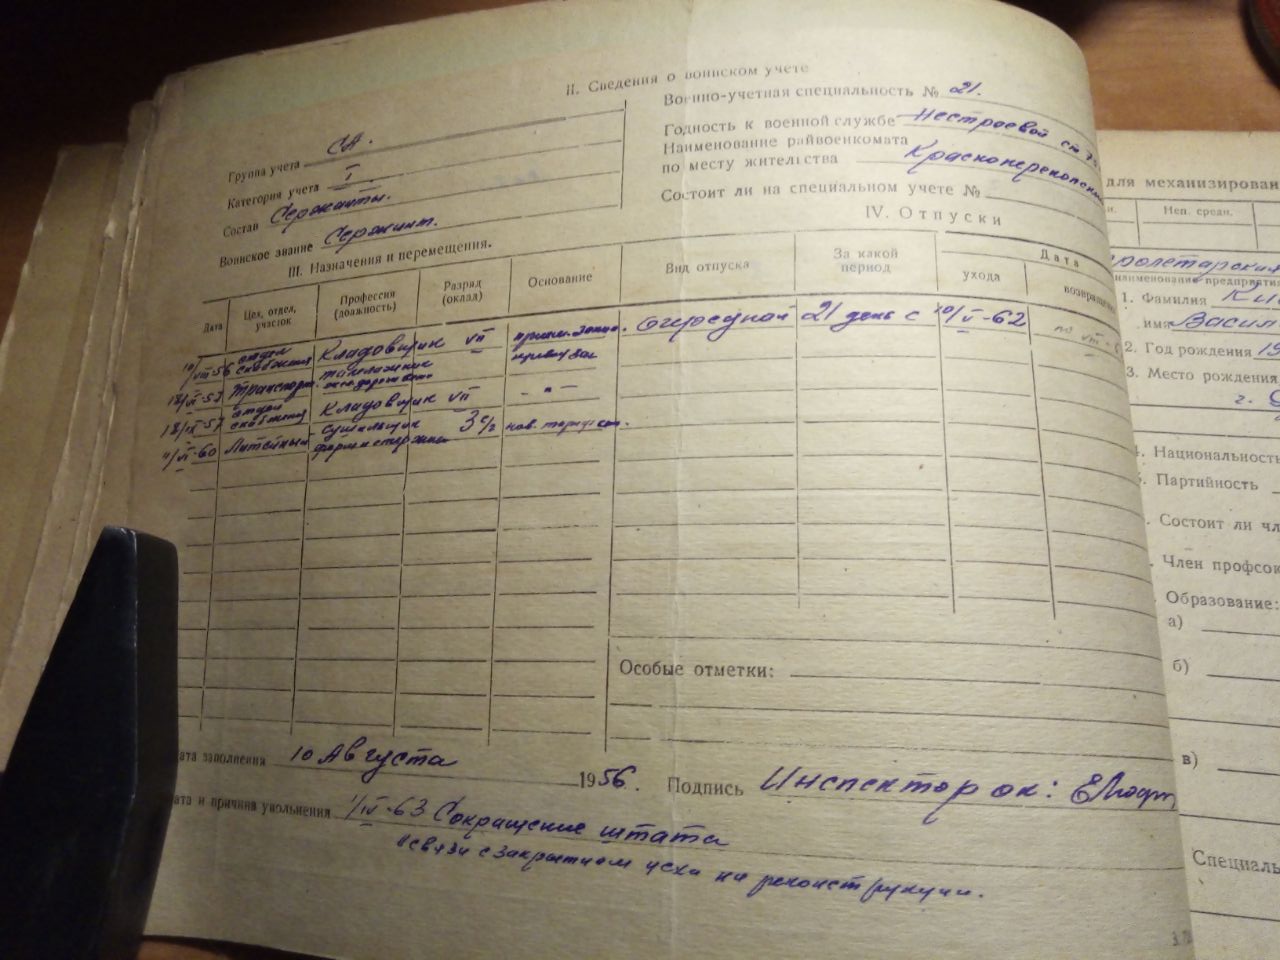 II. Сведения о воинском учете
Группа учета СА.
Категория учета I
Состав Сержанты.
Воинское звание Сержант.
Военно-учетная специальность № 21.
Годность к военной службе Нестроевой ст
Наименование райвоенкомата
по месту жительства Краснoперекопский
Состоит ли на специальном учете №
III. Назначения и перемещения.
Дата Цех, отдел, участок Профессия (должность) Разряд (оклад) Основание
10/VIII-56 отдел снабжения Кладовщик VII
Транспорт. такелажник
отдел снабжения Кладовщик VII — " —
11/VI-60 Литейный сушильщик форм и стержней
IV. Отпуски
Вид отпуска За какой период Дата
ухода возвращен
очередной 21 день с 10/VI-62
Особые отметки:
ата заполнения 10 Августа 1956.
Подпись Инспектор ок:
ата и причина увольнения 1/IV-63 Сокращение штата
в связи с закрытием цеха на реконструкции.
для механизирован
Неп. средн.
ролетарский
наименование предприятия
1. Фамилия
имя Васил
2. Год рождения 19
3. Место рождения
г.
4. Национальность
Партийность
Состоит ли чл
Член профсок
Образование:
а)
б)
в)
Специаль